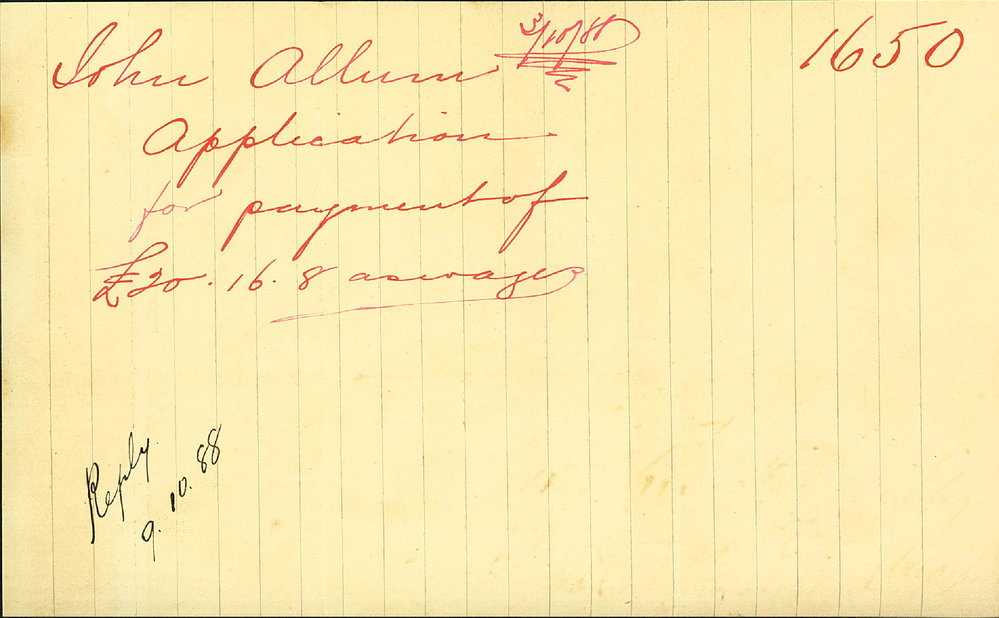 John Allum 3/10/88 1650
Application
for payment of
£20. 16. 8 as wages
Reply
9. 10. 88